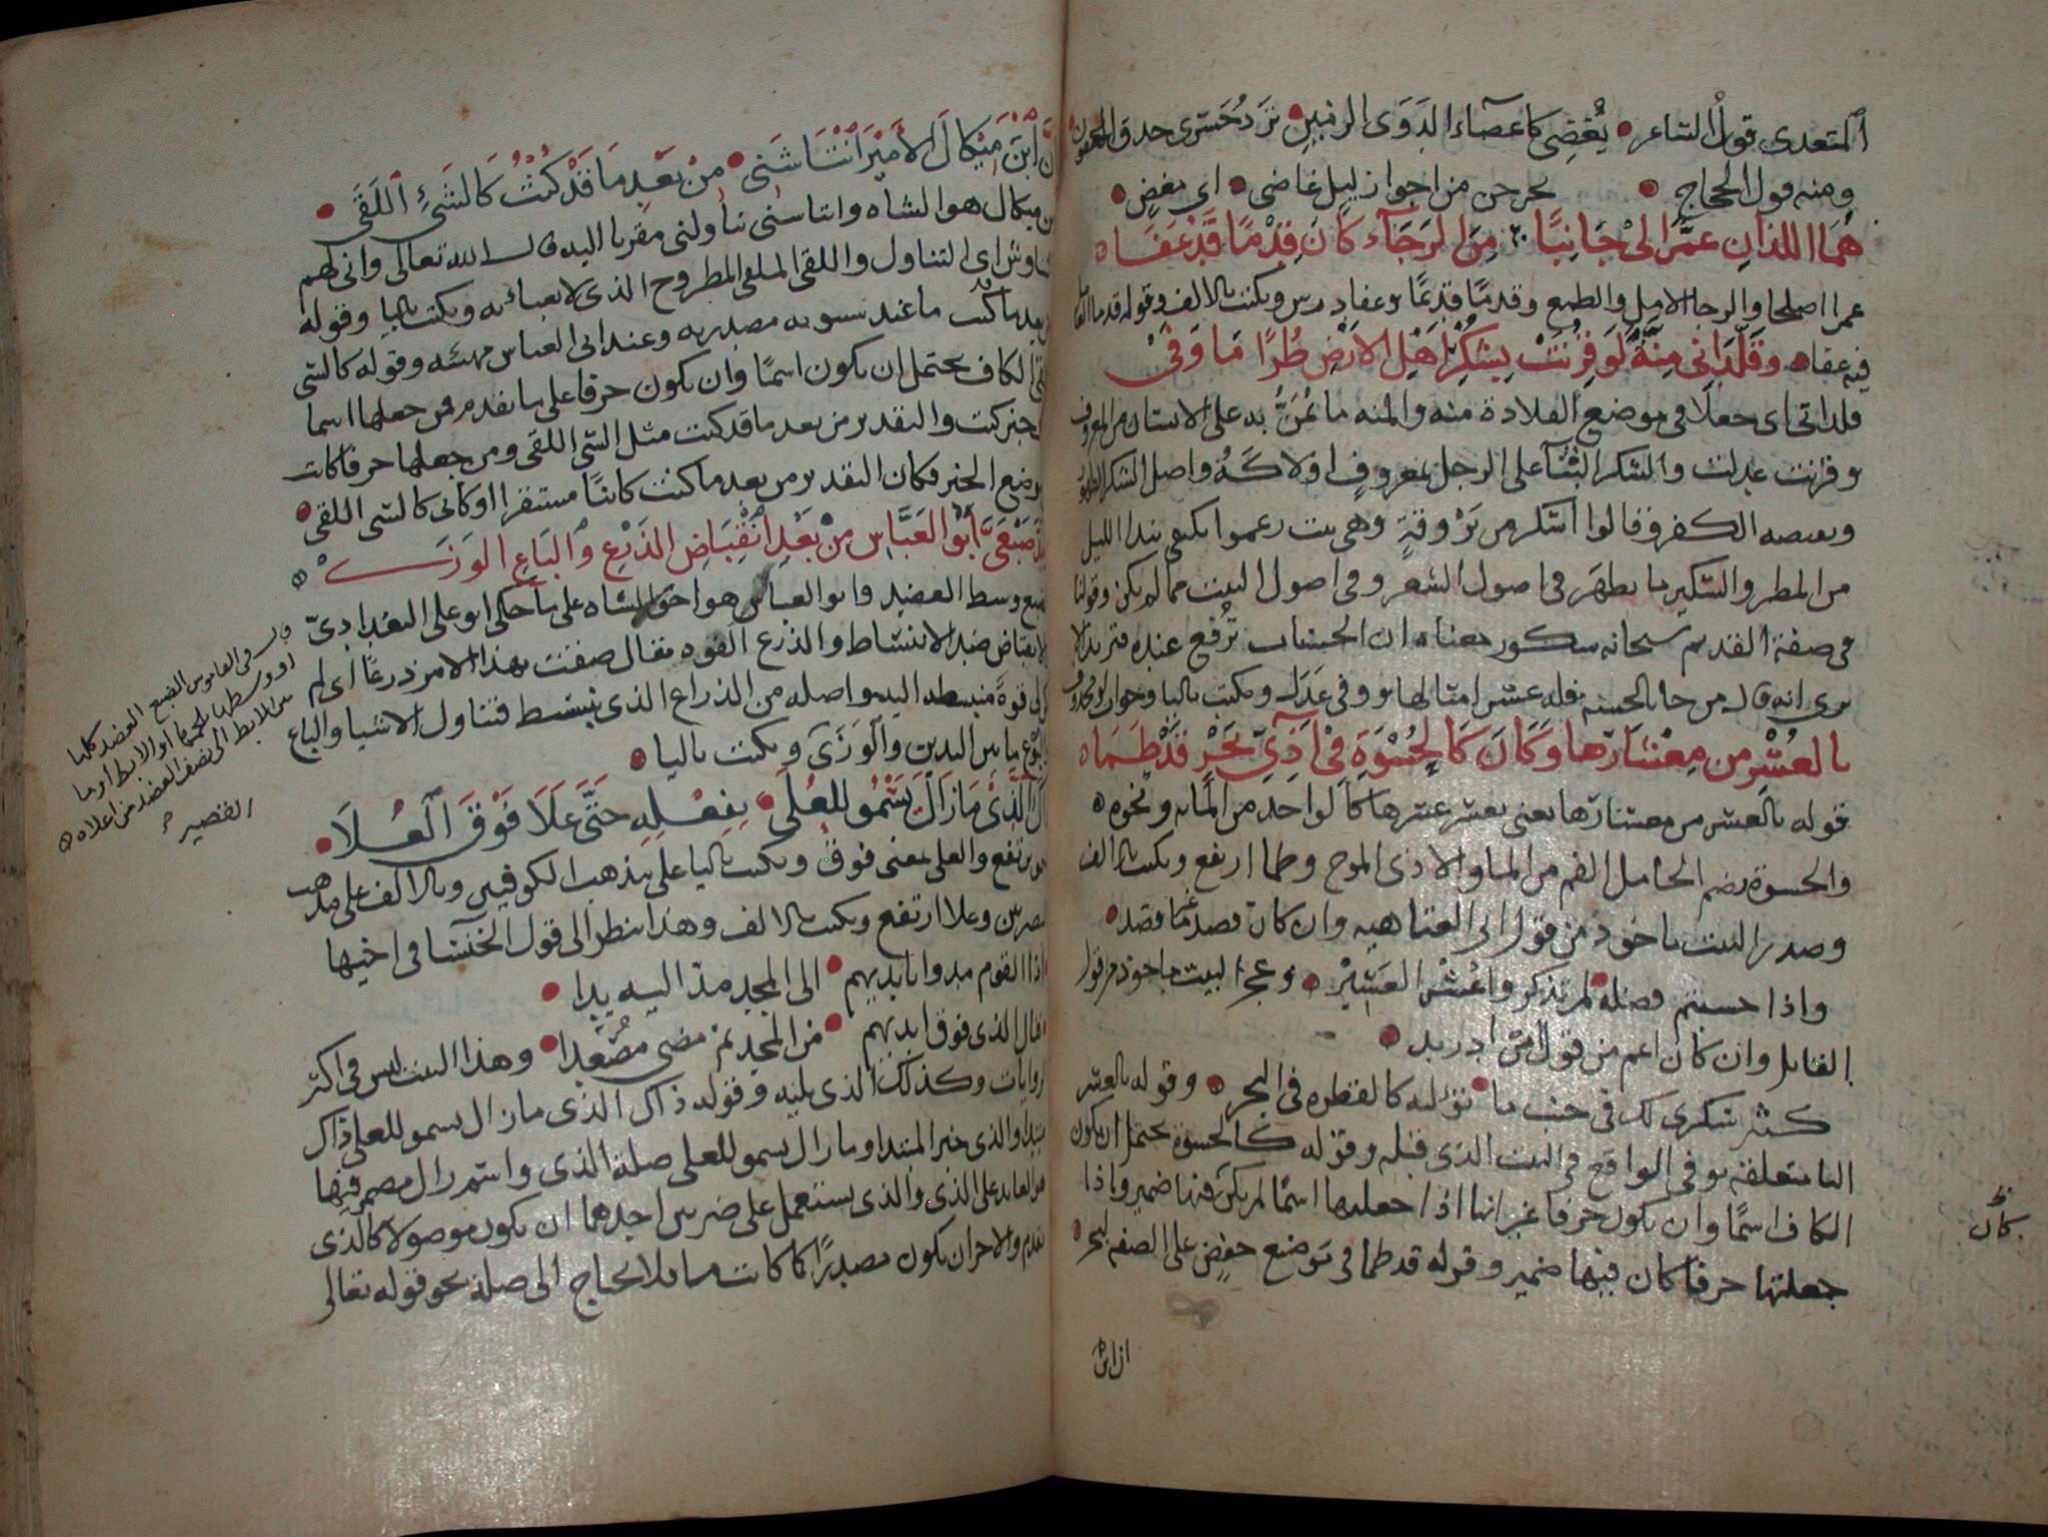 المتعدى قول الشاعر يغضى كاغضاء الدوى الزمين ترد حسرى حدق العيون
ومنه قول العجاج يخرجن من اجواز ليل غاضى اى مغض
هما اللذان عمرا لى جانبا من الرجاء كان قدما قد عفا
عمرا اصلحا والرجا الامل والطمع وقدما قديما وعفا درس ويكتب بالالف وقوله قدما
فيه عفا وقلدانى منة لو قرنت بشكر اهل الارض طرا ما وفى
قلدانى اى جعلا فى موضع القلادة منه والمنه ما يمن به على الانسان من المعروف
وقرنت عدلت والشكر الثناء على الرجل بمعروف اولاكه واصل الشكر الظهور
ونقيضه الكفر وقالوا اشكر من بروقة وهى نبت زعموا يكتفى بندا الليل
من المطر والشكير ما يظهر فى اصول الشعر وفى اصول النبت مما لم يكن وقولنا
فى صفة القديم سبحانه شكور معناه ان الحسنات ترفع عنده فتزيد الا
ترى انه قال من جا بالحسنه فله عشر امثالها ووفى عدل ويكتب باليا وجواب لو محذوف
بالعشر من معشارها وكان كالحسوة فى آذى بحر قد طما
قوله بالعشر من معشارها يعنى بعشر عشرها كالواحد من المايه ونحوه
والحسوة بضم الحا مل الفم من الما والاذى الموج وطما ارتفع ويكتب بالالف
وصدر البيت ماخوذ من قول ابى العتاهيه وان كان قصد غير ما قصد
واذا حسبتم فضله لم تذكروا عشر العشير وعجز البيت ماخوذ من قول
القايل وان كان اعم من قول ابن دريد
كثير شكرى لك فى جنب ما توليه كالقطره فى البحر وقوله بالعشر
البا متعلقه بوفى الواقع فى البيت الذى قبله وقوله كالحسوة يحتمل ان يكون
الكاف اسما وان يكون حرفا غير انها اذا جعلتها اسما لم يكن فيها ضمير واذا
جعلتها حرفا كان فيها ضمير وقوله قد طما فى موضع خفض على الصفه لبحر
ان ابن
كان
ان ابن ميكال الامير انتاشنى من بعد ما قد كنت كالشئ اللقى
ابن ميكال هو الشاه وانتاشنى تناولنى مقربا اليه قال الله تعالى وانى لهم
التناوش اى التناول واللقى الملقى المطروح الذى لا يعبأ به ويكتب باليا وقوله
من بعد ما قد كنت ما عند سيبويه مصدريه وعند ابى العباس مهيئه وقوله كالشى
اللقى الكاف يحتمل ان يكون اسما وان يكون حرفا على ما تقدم فمن جعلها اسما
خبر كنت والتقدير من بعد ما قد كنت مثل الشى اللقى ومن جعلها حرفا كانت
موضع الخبر فكان التقدير من بعد ما كنت كائنا مستقرا او كانى كالشى اللقى
ومد ضبعى ابو العباس من بعد انقباض الذرع والباع الوزى
الضبع وسط العضد وابو العباس هو اخو الشاه على ما حكى ابو على البغدادى
الانقباض ضد الانبساط والذرع القوه يقال ضقت بهذا الامر ذرعا اى لم
لى قوة منبسطه اليه واصله من الذراع الذى ينبسط فتناول الاشيا والباع
البوع ما بين اليدين والوزى ويكتب باليا
ذاك الذى ما زال يسمو للعلى بفعله حتى علا فوق العلا
يسمو يرتفع والعلى بمعنى فوق ويكتب باليا على مذهب الكوفيين وبالالف على مذهب
البصريين وعلا ارتفع ويكتب بالالف وهذا ينظر الى قول الخنسا فى اخيها
اذا القوم مدوا بايديهم الى المجد مد اليه يدا
فنال الذى فوق ايديهم من المجد ثم مضى مصعدا وهذا البيت ليس فى اكثر
روايات وكذلك الذى يليه وقوله ذاك الذى ما زال يسمو للعلى ذاك
مبتدا والذى خبر المبتدا وما زال يسمو للعلى صلة الذى واسم زال مضمر فيها
هو العايد على الذى والذى يستعمل على ضربين احدهما ان يكون موصولا كالذى
تقدم والاخر ان يكون مصدرا كما كانت ما فلا يحتاج الى صلة نحو قوله تعالى
قال فى القاموس الضبع العضد كلها
او وسطها بلحمها او الابط او ما
بين الابط الى نصف العضد من اعلاه